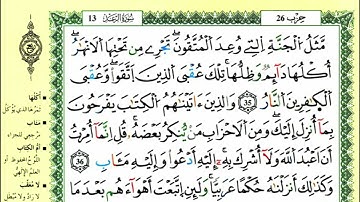 حِزْب 26
سُورَةُ الرَّعْد 13
مَّثَلُ الْجَنَّةِ اِلتِے وُعِدَ اَلْمُتَّقُونَۖ تَجْرِے مِن تَحْتِهَا اَلَانْهَٰرُۖ
أُكْلُهَا دَآئِمٞ وَظِلُّهَاۖ تِلْكَ عُقْبَي اَلذِينَ اَتَّقَواْۖ وَّعُقْبَي
اَلْكٰ۪فِرِينَ اَلنَّارُۖ 35 وَالذِينَ ءَاتَيْنَٰهُمُ اُلْكِتَٰبَ يَفْرَحُونَ
بِمَآ أُنزِلَ إِلَيْكَۖ وَمِنَ اَلَاحْزَابِ مَنْ يُّنكِرُ بَعْضَهُۥۖ قُلِ اِنَّمَآ أُمِرْتُ
أَنَ اَعْبُدَ اَللَّهَ وَلَآ أُشْرِكَ بِهِۦٓۖ إِلَيْهِ أَدْعُواْ وَإِلَيْهِ مَـَٔابِۖ 36
وَكَذَٰلِكَ أَنزَلْنَٰهُ حُكْماً عَرَبِيّاٗۖ وَلَئِنِ اِتَّبَعْتَ أَهْوَآءَهُم بَعْدَ مَا
أُكْلُهَا
مَـَٔاب
أُمُّ الْكِتَاب